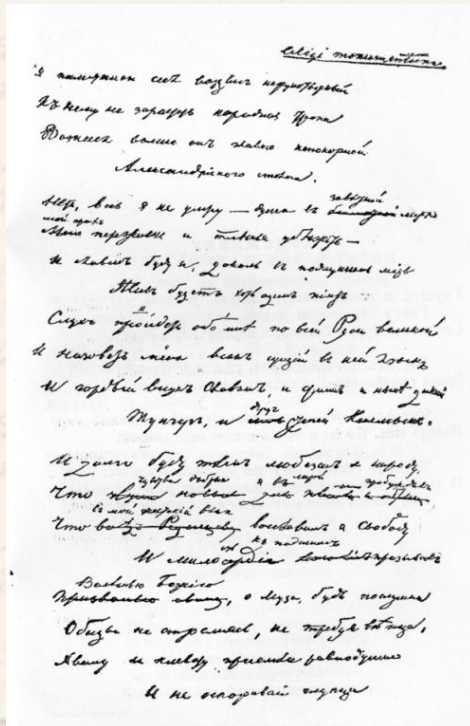 Я памятник себе воздвиг нерукотворный
Къ нему не зарастетъ народная тропа
Вознесся выше онъ главою непокорной
Александрийского столпа.
Нетъ, весь я не умру — душа въ
заветной
мой прахъ
переживетъ и тленья убежитъ —
И славенъ буду я, доколь въ подлунномъ мире
Живъ будетъ хоть одинъ пиитъ
Слухъ обо мне по всей Руси великой
И назоветъ меня всякъ сущий в ней языкъ
И гордый внукъ Славянъ, и финнъ и ныне дикой
Тунгузъ, и
другъ
степей Калмыкъ.
И долго буду темъ любезенъ я народу
чувства добрые я въ лирой пробуждалъ
Что
Въ мой жестокий векъ
Что возславилъ я Свободу
къ падшимъ
И милость призывалъ
Веленью Божию
о Муза, будь послушна
Обиды не страшась, не требуя венца,
Хвалу и клевету приемли равнодушно
И не оспоривай глупца